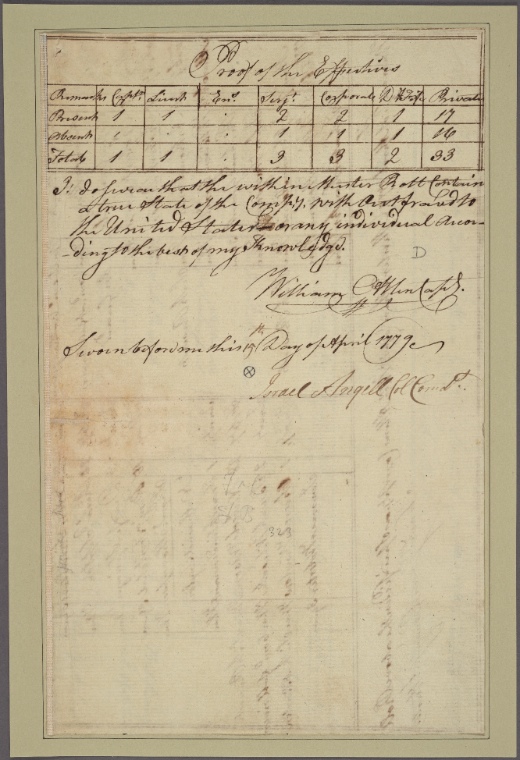 Proof of the Effectives
Remarks Capt. Lieut. Ens. Serjt. Corporals D & Fifs Privates
Present 1 1 . 2 2 1 17
Absent . . . 1 1 1 16
Total 1 1 . 3 3 2 33
I do swear that the within Muster Roll Contain
a true State of the Compy. without fraud to
the United States or any individual Accor-
-ding to the best of my Knowledge.
D
William Allen Capt.
Sworn before me this 19th Day of April 1779
Israel Angell Col. Comdt.
323